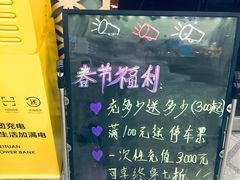 春节福利:
充多少送多少(300起)
满100元送停车票
一次性充值3000元
可享终身七折
团充电
生活加满电
MEITUAN
POWER BANK